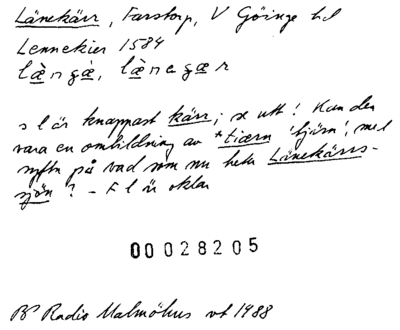 Länekärr, Farstorp, V Göinge hd
Lennekier 1584
lὰngὰ, lὰnagær
s l är knappast kärr; se utt! Kan den
vara en ombildning av *tiærn 'tjärn', med
syftn på vad som nu heter Länekärrs-
sjön? – F l är oklar
00028205
BP Radio Malmöhus vt 1988